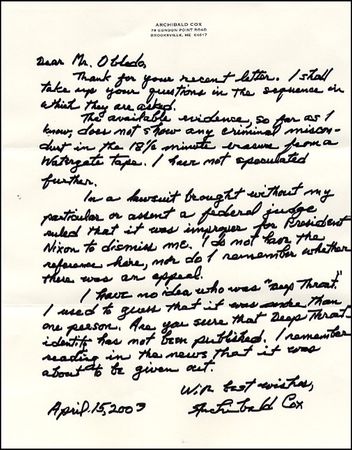 ARCHIBALD COX
78 CONDON POINT ROAD
BROOKSVILLE, ME 04617
Dear Mr. Obledo,
Thank for your recent letter. I shall
take up your questions in the sequence in
which they are asked.
The available evidence, so far as I
know, does not show any criminal miscon-
duct in the 18½ minute erasure from a
Watergate tape. I have not speculated
further.
In a lawsuit brought without my
particular or assent a federal judge
ruled that it was improper for President
Nixon to dismiss me. I do not have the
reference here, nor do I remember whether
there was an appeal.
I have no idea who was "Deep Throat."
I used to guess that it was more than
one person. Are you sure that Deep Throat
identity has not been published. I remember
reading in the news that it was
about to be given out.
With best wishes,
April 15, 2003 Archibald Cox